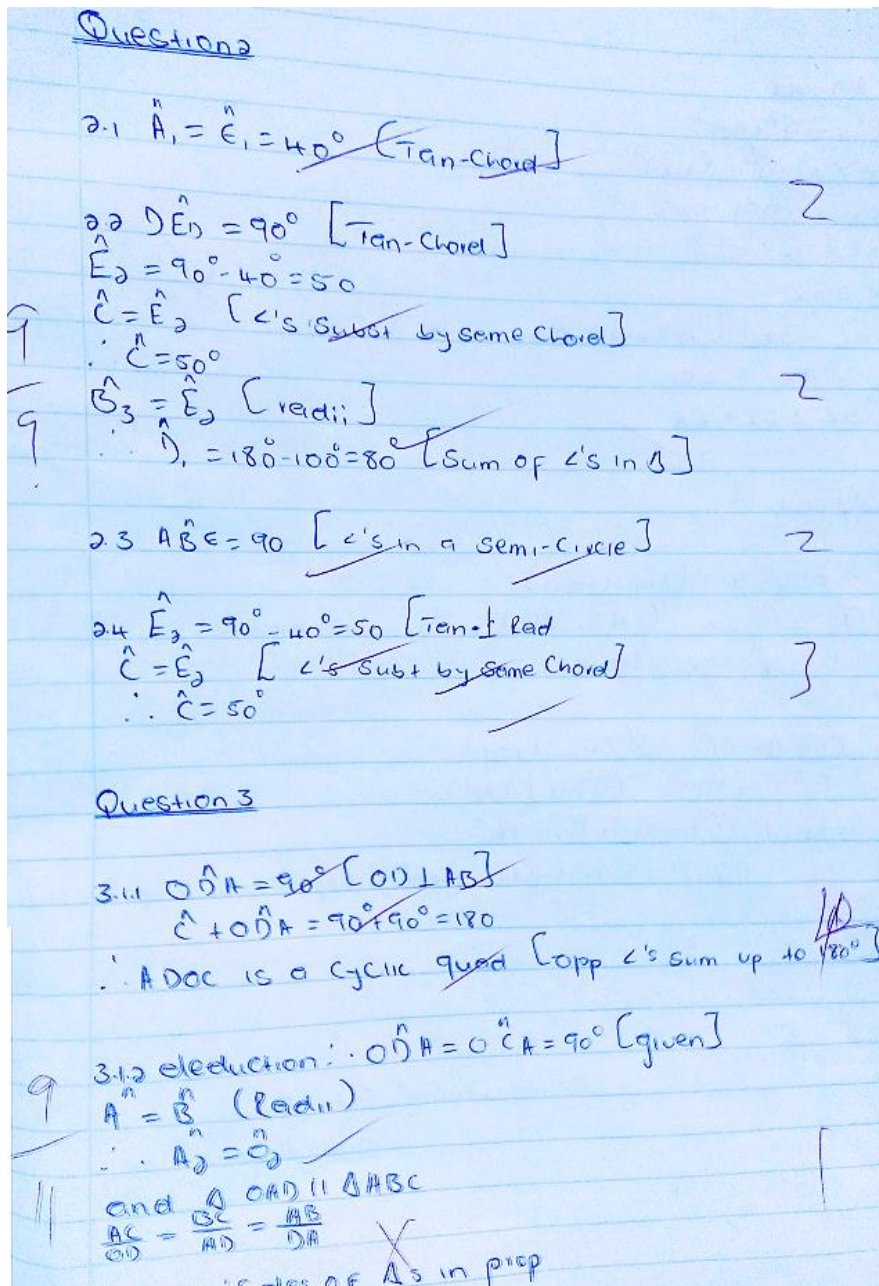 Question 2
2.1 Â₁ = Ê₁ = 40° [Tan-Chord]
2
2.2 DÊD = 90° [Tan-Chord]
Ê₂ = 90° - 40° = 50
Ĉ = Ê₂ [<'s Subst by same Chord]
∴ Ĉ = 50°
9
9
2
B̂₃ = Ê₂ [radii]
∴ D̂₁ = 180° - 100° = 80° [Sum of <'s in Δ]
2.3 AB̂E = 90 [<'s in a semi-circle]
2
2.4 Ê₂ = 90° - 40° = 50 [Tan ⊥ Rad
Ĉ = Ê₂ [<'s Subt by same Chord]
3
∴ Ĉ = 50°
Question 3
3.1.1 OD̂A = 90° [OD ⊥ AB]
Ĉ + OD̂A = 90° + 90° = 180
∴ ADOC is a cyclic quad [opp <'s sum up to 180°]
3.1.2 deduction: ∴ OD̂A = OĈA = 90° [given]
9
11
Â = B̂ (Radii)
∴ Â₂ = Ô₂
1
and Δ OAD || ΔABC
AC/OD = BC/AD = AB/DA
of Δs in prop